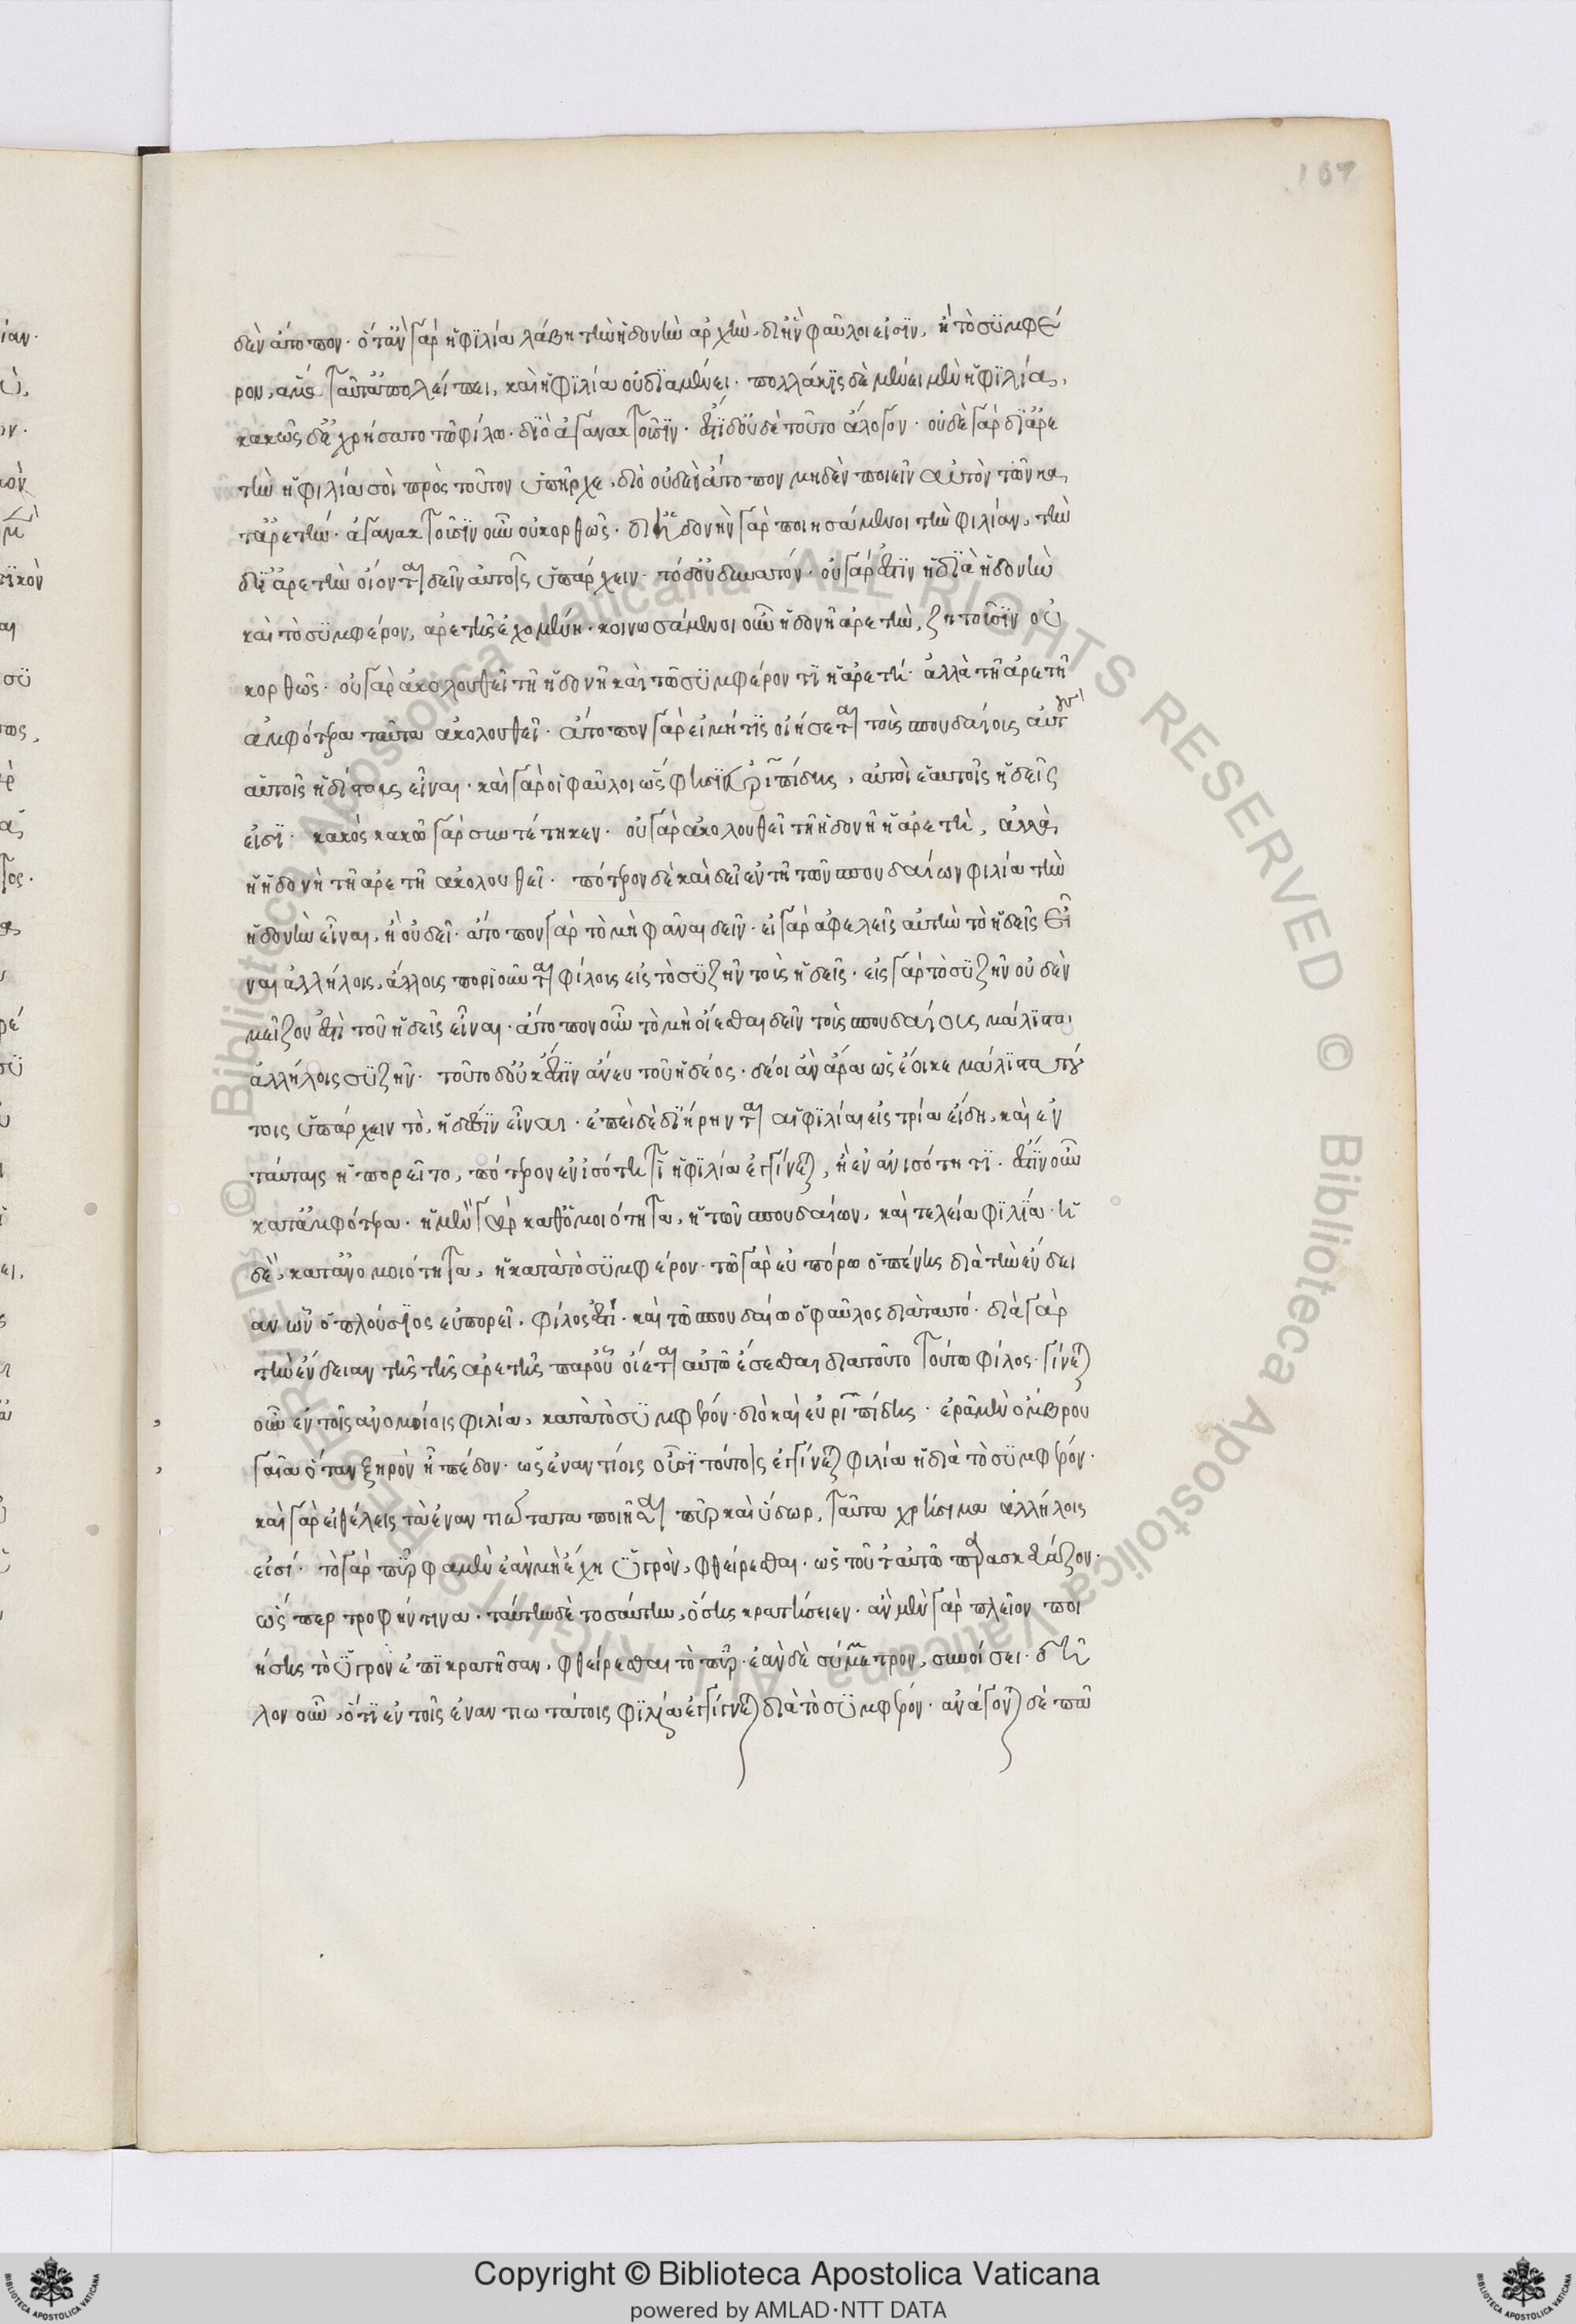 167
δὲν ἄτοπον· ὅταν γὰρ ἡ φιλία λάβη τὴν ἡδονὴν ἀρχὴν, δι' ἣν φαῦλοι εἰσὶν, ἢ τὸ συμφέ
ρον, ἅμα ταῦτ' ἀπολείπει, καὶ ἡ φιλία οὐ διαμένει· πολλάκις δὲ μένει μὲν ἡ φιλία,
κακῶς δ' ἐχρήσατο τῶ φίλω· διὸ ἀγανακτοῦσιν· ἔστι δ' οὐδὲ τοῦτο ἄλογον· οὐδὲ γὰρ δι' ἀρε
τὴν ἡ φιλία σοὶ πρὸς τοῦτον ὑπῆρχε, διὸ οὐδὲν ἄτοπον μηδὲν ποιεῖν αὐτὸν τῶν κα
τ' ἀρετήν· ἀγανακτοῦσιν οὖν οὐκ ὀρθῶς· δι' ἡδονὴν γὰρ ποιησάμενοι τὴν φιλίαν, τὴν
δι' ἀρετὴν οἴονται δεῖν αὐτοῖς ὑπάρχειν· τὸ δ' οὐ δυνατόν· οὐ γάρ ἐστιν ἡ διὰ ἡδονὴν
καὶ τὸ συμφέρον, ἀρετῆς ἐχομένη· κοινωσάμενοι οὖν ἡδονῆ ἀρετὴν, ζητοῦσιν οὐ
κ ὀρθῶς· οὐ γὰρ ἀκολουθεῖ τῆ ἡδονῆ καὶ τῶ συμφέροντι ἡ ἀρετή· ἀλλὰ τῆ ἀρετῆ
ἀμφότερα ταῦτα ἀκολουθεῖ· ἄτοπον γὰρ εἰ μή τις οἰήσεται τοὺς σπουδαίους αὐτοὺς
αὑτοῖς ἡδίστους εἶναι· καὶ γὰρ οἱ φαῦλοι ὥς φησιν Εὐριπίδης, αὐτοὶ ἑαυτοῖς ἡδεῖς
εἰσί· κακὸς κακῶ γὰρ συντέτηκεν· οὐ γὰρ ἀκολουθεῖ τῆ ἡδονῆ ἡ ἀρετὴ, ἀλλὰ
ἡ ἡδονὴ τῆ ἀρετῆ ἀκολουθεῖ· πότερον δὲ καὶ δεῖ ἐν τῆ τῶν σπουδαίων φιλία τὴν
ἡδονὴν εἶναι, ἢ οὐ δεῖ· ἄτοπον γὰρ τὸ μὴ φάναι δεῖν· εἰ γὰρ ἀφελεῖς αὐτὴν τὸ ἡδεῖς εἶ
ναι ἀλλήλοις, ἄλλους ποριοῦνται φίλους εἰς τὸ συζῆν τοὺς ἡδεῖς· εἰς γὰρ τὸ συζῆν οὐδὲν
μεῖζον ἐστὶ τοῦ ἡδεῖς εἶναι· ἄτοπον οὖν τὸ μὴ οἴεσθαι δεῖν τοὺς σπουδαίους μάλιστα
ἀλλήλοις συζῆν· τοῦτο δ' οὐκ ἔστιν ἄνευ τοῦ ἡδέος· δέοι ἂν ἄρα ὡς ἔοικε μάλιστα τού
τοις ὑπάρχειν τὸ, ἡδέσιν εἶναι· ἐπεὶ δὲ διήρηνται αἱ φιλίαι εἰς τρία εἴδη, καὶ ἐν
ταύταις ἠπορεῖτο, πότερον ἐν ἰσότητι ἡ φιλία ἐγγίνεται, ἢ ἐν ἀνισότητι· ἔστιν οὖν
κατ' ἀμφότερα· ἡ μὲν γὰρ καθ' ὁμοιότητα, ἡ τῶν σπουδαίων, καὶ τελεία φιλία· ἡ
δὲ, κατ' ἀνομοιότητα, ἡ κατὰ τὸ συμφέρον· τῶ γὰρ εὐπόρω ὁ πένης διὰ τὴν ἔνδει
αν ὧν ὁ πλούσιος εὐπορεῖ, φίλος ἐστί· καὶ τῶ σπουδαίω ὁ φαῦλος διὰ ταυτό· διὰ γὰρ
τὴν ἔνδειαν τῆς τῆς ἀρετῆς παρ' οὗ οἴεται αὐτῶ ἔσεσθαι διὰ τοῦτο τούτω φίλος· γίνεται
οὖν ἐν τοῖς ἀνομοίοις φιλία, κατὰ τὸ συμφέρον· διὸ καὶ εὐριπίδης· ἐρᾶ μὲν ὄμβρου
γαῖα ὅταν ξηρὸν ἦ πέδον· ὡς ἐναντίοις οὖσι τούτοις ἐγγίνεται φιλία ἡ διὰ τὸ συμφέρον·
καὶ γὰρ εἰ θέλεις τὰ ἐναντιώτατα ποιῆσαι πῦρ καὶ ὕδωρ, ταῦτα χρήσιμα ἀλλήλοις
εἰσί· τὸ γὰρ πῦρ φαμὲν ἐὰν μὴ ἔχη ὑγρὸν, φθείρεσθαι· ὡς τοῦτ' αὐτῶ παρασκευάζον·
ὥσπερ τροφήν τινα· ταύτην δὲ τοσαύτην, ὅσης κρατήσειεν· ἂν μὲν γὰρ πλεῖον ποι
ήσης τὸ ὑγρὸν ἐπικρατῆσαν, φθείρεσθαι τὸ πῦρ· ἐὰν δὲ σύμμετρον, συνοίσει· δῆ
λον οὖν, ὅτι ἐν τοῖς ἐναντιωτάτοις φιλία ἐγγίγνεται διὰ τὸ συμφέρον· ἀνάγονται δὲ πᾶ